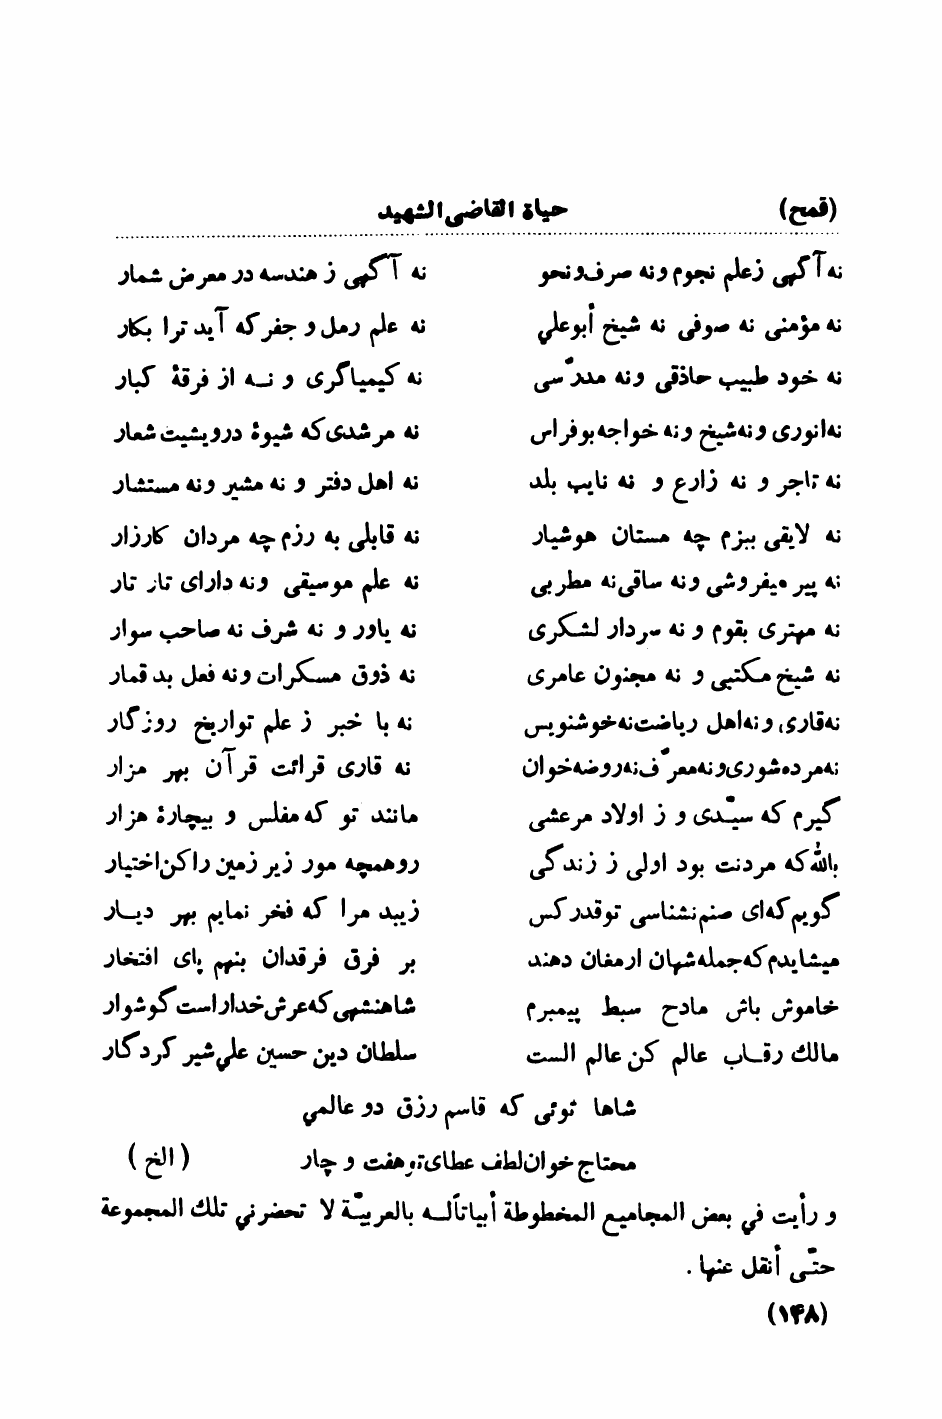 (قمح) حياة القاضي الشهيد
نه آگهی زعلم نجوم ونه صرف‌ونحو نه آگهی ز هندسه در معرض شمار
نه مؤمنی نه صوفی نه شیخ أبوعلي نه علم رمل و جفر که آید ترا بکار
نه خود طبیب حاذقی ونه مدرّسی نه کیمیاگری و نـه از فرقهٔ کبار
نه‌انوری ونه‌شیخ ونه‌خواجه‌بوفراس نه مرشدی‌که شیوهٔ درویشیت شعار
نه تاجر و نه زارع و نه نایب بلد نه اهل دفتر و نه مشیر ونه مستشار
نه لایقی ببزم چه مستان هوشیار نه قابلی به رزم چه مردان کارزار
نه پیر میفروشی ونه ساقی‌نه مطربی نه علم موسیقی ونه دارای تار تار
نه مهتری بقوم و نه سردار لشکری نه یاور و نه شرف نه صاحب سوار
نه شیخ مکتبی و نه مجنون عامری نه ذوق مسکرات ونه فعل بد قمار
نه‌قاری ونه‌اهل ریاضت‌نه‌خوشنویس نه با خبر ز علم تواریخ روزگار
نه‌مرده‌شوری‌ونه‌معرّف‌نه‌روضه‌خوان نه قاری قرائت قرآن بهر مزار
گیرم که سیّدی و ز اولاد مرعشی مانند تو که مفلس و بیچارهٔ هزار
بالله که مردنت بود اولی ز زندگی روهمچه مور زیر زمین راکن‌اختیار
گویم‌که‌ای صنم‌نشناسی توقدرکس زیبد مرا که فخر نمایم بهر دیـار
میشایدم‌که‌جمله‌شهان ارمغان دهند بر فرق فرقدان بنهم پای افتخار
خاموش باش مادح سبط پیمبرم شاهنشهی‌که‌عرش‌خداراست‌گوشوار
مالك رقـاب عالم کن عالم الست سلطان دین حسین علي شیر کردگار
شاها توئی که قاسم رزق دو عالمي
محتاج خوان‌لطف عطای‌تو هفت و چار ( الخ )
و رأيت في بعض المجاميع المخطوطة أبياتاًلـه بالعربيّـة لا تحضرني تلك المجموعة
حتّـى أنقل عنها .
(۱۴۸)